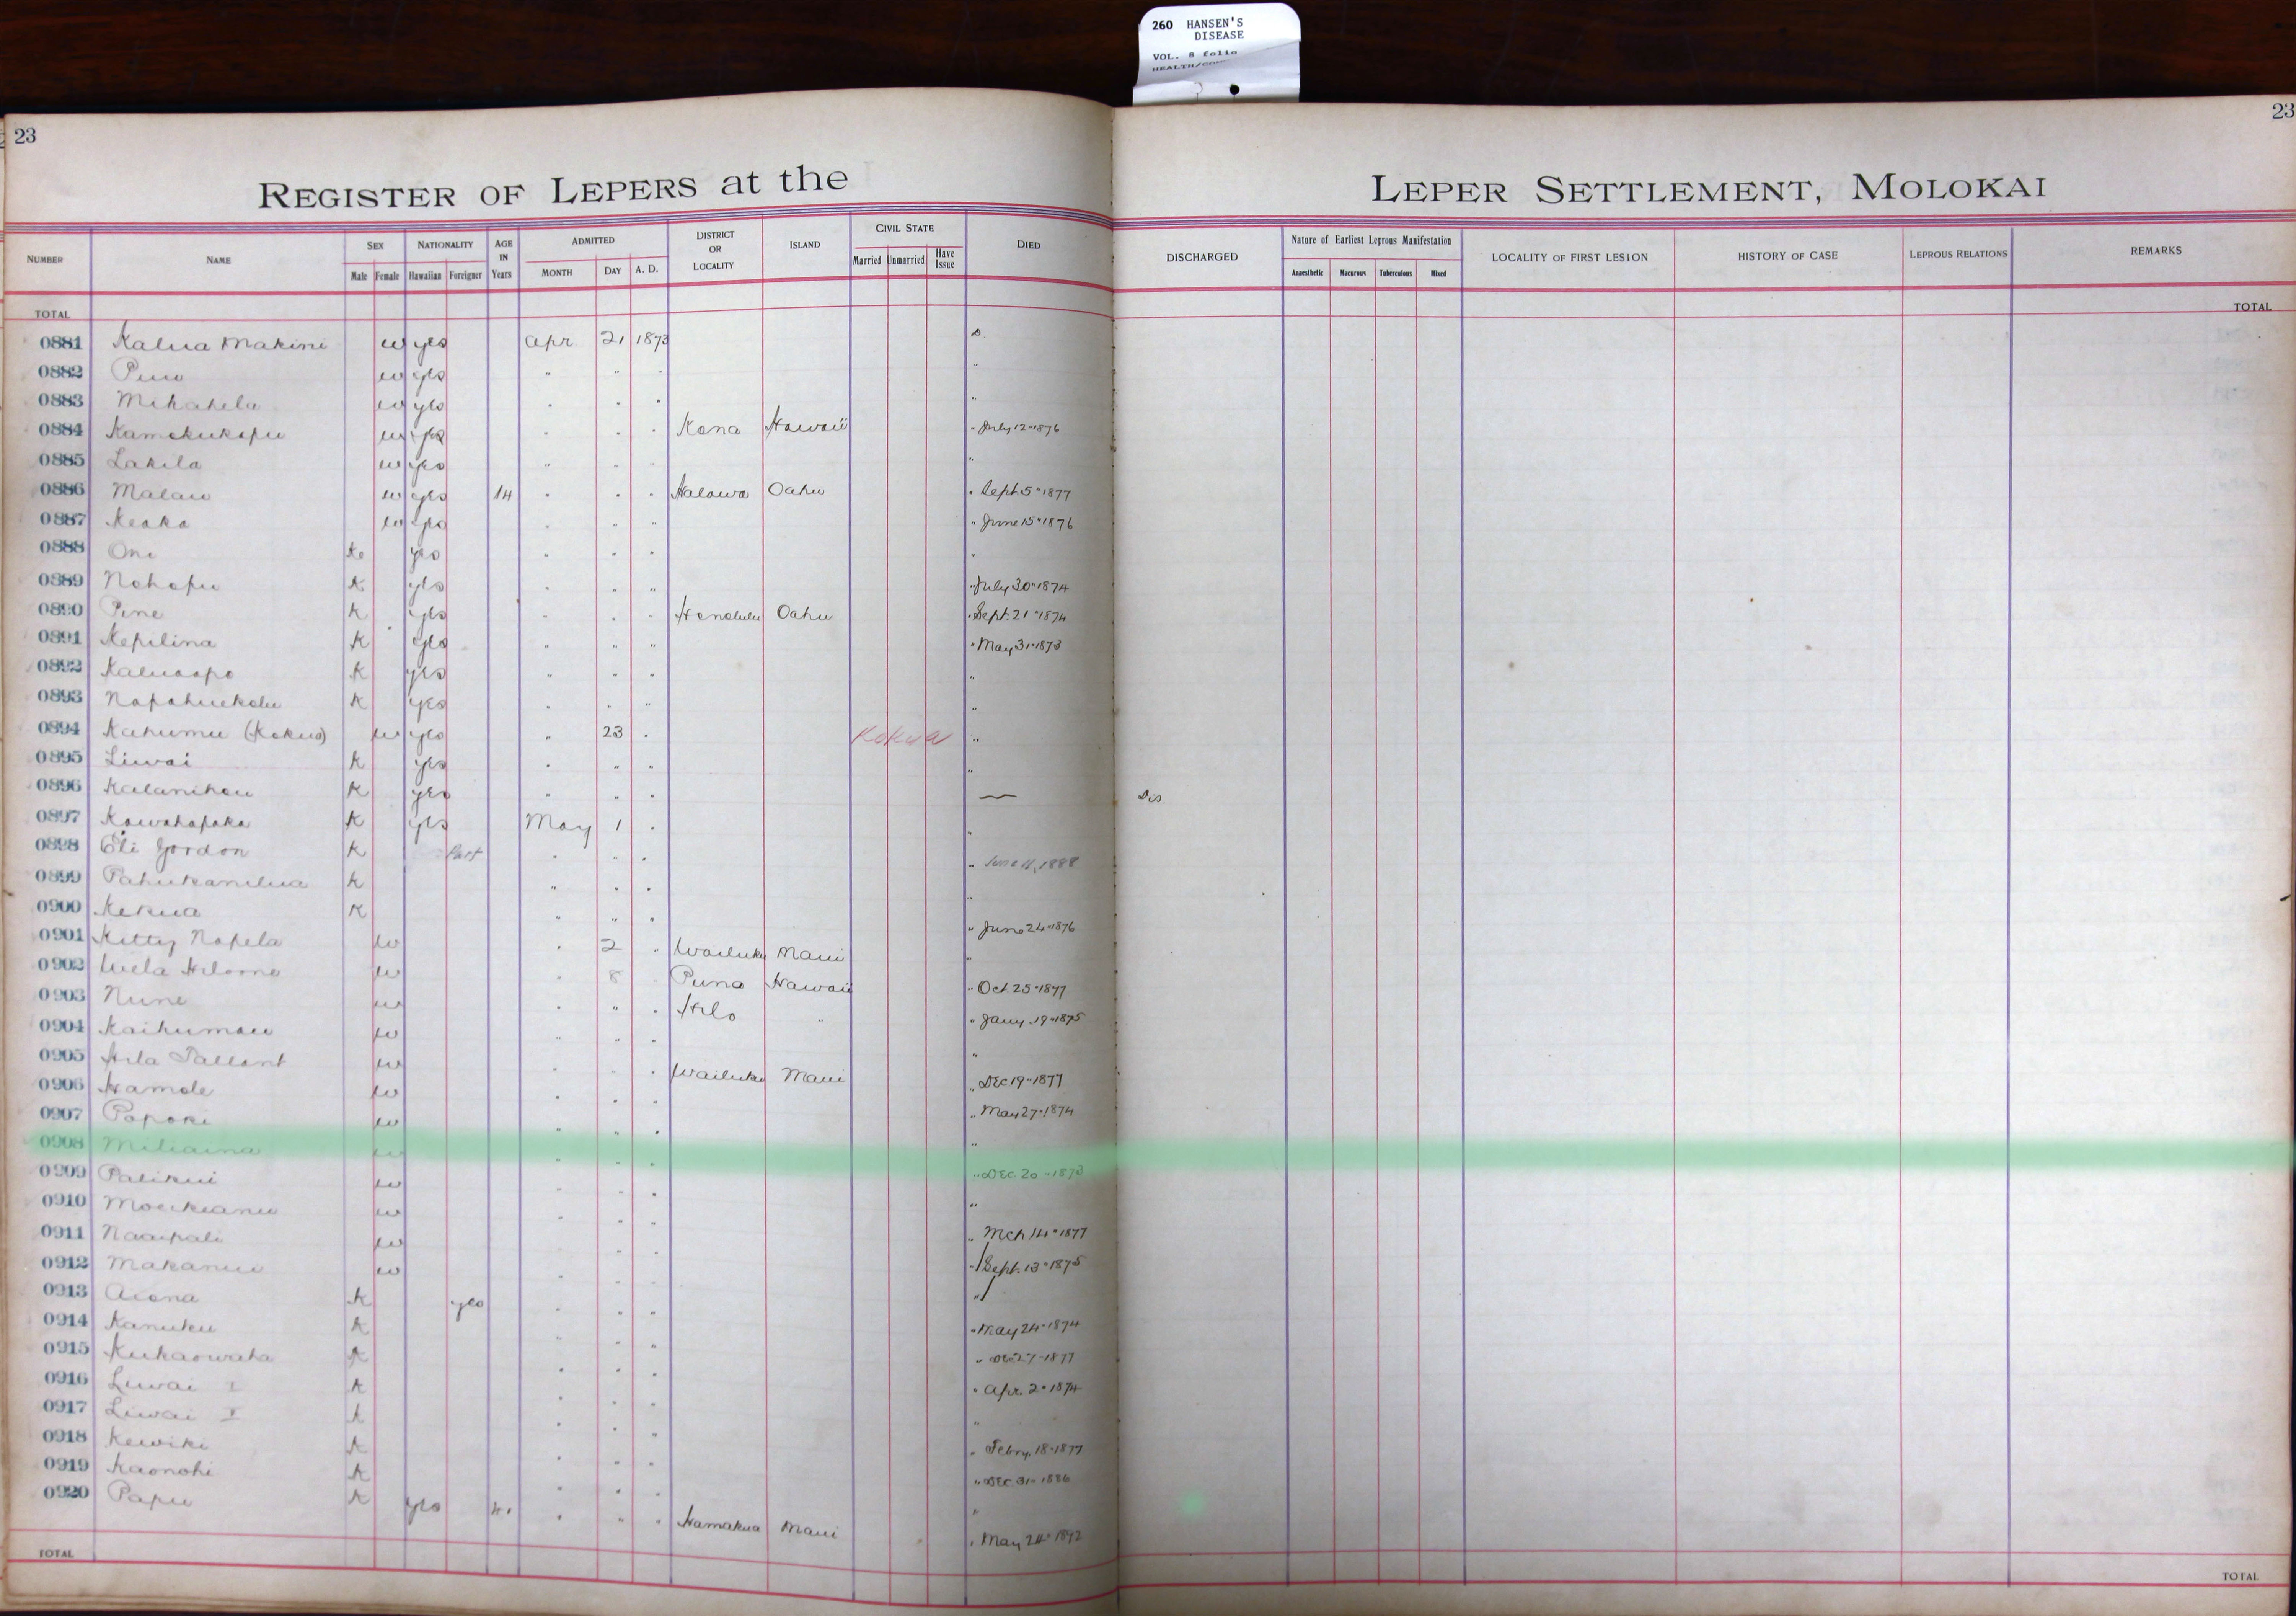 260 HANSEN'S
DISEASE
VOL. 8 folio
23
23
REGISTER OF LEPERS at the LEPER SETTLEMENT, MOLOKAI
NUMBER NAME SEX NATIONALITY AGE IN Years ADMITTED DISTRICT OR LOCALITY ISLAND CIVIL STATE DIED DISCHARGED Nature of Earliest Leprous Manifestation LOCALITY OF FIRST LESION HISTORY OF CASE LEPROUS RELATIONS REMARKS
Male Female Hawaiian Foreigner MONTH DAY A. D. Married Unmarried Have Issue Anaesthetic Macurous Tuberculous Mixed
TOTAL TOTAL
0881 Kalua Makini w yes Apr 21 1873 D.
0882 w yes " " " "
0883 Mikahela w yes " " " "
0884 Kamokukapu w yes " " " Kona Hawaii " July 12" 1876
0885 Lakila w yes " " " "
0886 Malau w yes 14 " " " Halawa Oahu " Sept. 5" 1877
0887 Keaka w yes " " " " June 15" 1876
0888 Oni K. yes " " " "
0889 Nohopu K yes " " " " July 30" 1874
0890 Pine K yes " " " Honolulu Oahu " Sept. 21" 1874
0891 Kepilina K yes " " " " May 31" 1873
0892 Kaluaopo K yes " " " "
0893 Napahuekolu K yes " " " "
0894 Kahumu (Kokua) w yes " 23 " Kokua "
0895 Liwai K yes " " " "
0896 Kalanihou K yes " " " — Dis
0897 Kawahapaka K yes May 1 " "
0898 Eli Gordon K Part " " " " June 11, 1888
0899 Pahukanilua K " " " "
0900 Kekua K " " " " June 24" 1876
0901 Kitty Napela w " 2 " Wailuku Maui "
0902 w " 8 " Puna Hawaii " Oct. 25" 1877
0903 Nune w " " " Hilo " " Jany. 19" 1875
0904 Kaihumau w " " " "
0905 Hila Tallant w " " " Wailuku Maui " Dec 19" 1877
0906 Hamole w " " " " May 27" 1874
0907 Papoki w " " " "
0908 Miliaina w " " " " Dec. 20" 1873
0909 Palikui w " " " "
0910 Moeikeanu w " " " " Mch 14" 1877
0911 Naaipali w " " " " Sept. 13" 1875
0912 Makanui w " " " "
0913 Aiona K yes " " " " May 24" 1874
0914 Kanuku K " " " " Dec 27" 1877
0915 Kukaowaha K " " " " Apr. 2" 1874
0916 Liwai I K " " " "
0917 Liwai K " " " " Febry. 18" 1877
0918 Kewiki K " " " " Dec. 31" 1886
0919 Kaonohi K " " " "
0920 Papu K yes " " " Hamakua Maui " May 24" 1892
TOTAL TOTAL